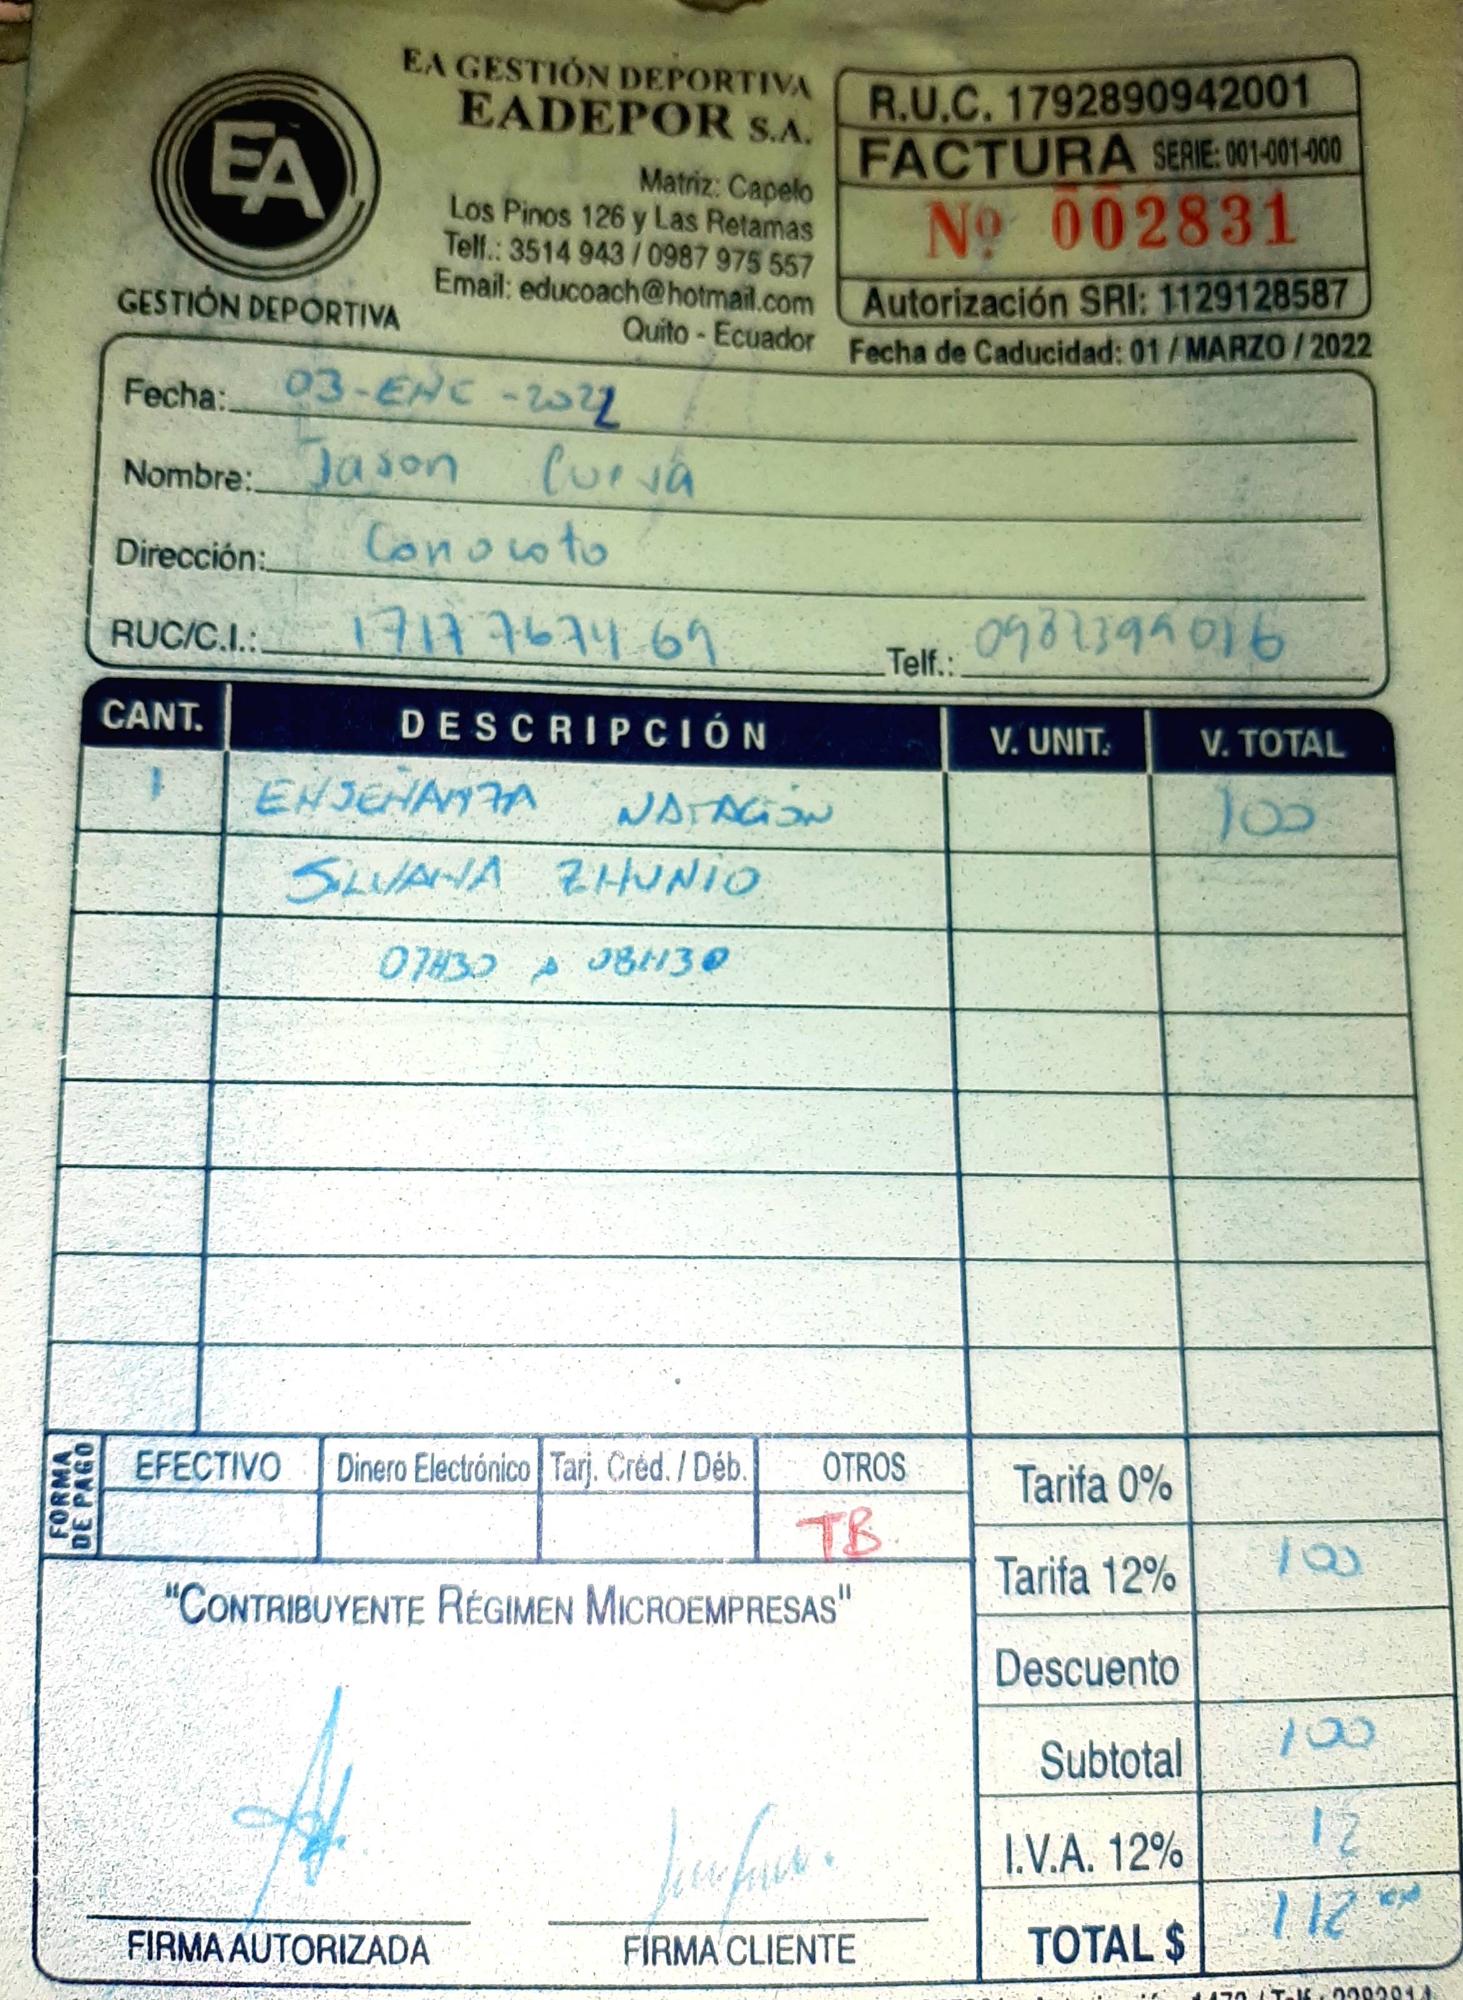 EA GESTIÓN DEPORTIVA
EADEPOR S.A.
EA
GESTIÓN DEPORTIVA
Matriz: Capelo
Los Pinos 126 y Las Retamas
Telf.: 3514 943 / 0987 975 557
Email: educoach@hotmail.com
Quito - Ecuador
R.U.C. 1792890942001
FACTURA SERIE: 001-001-000
Nº 002831
Autorización SRI: 1129128587
Fecha de Caducidad: 01 / MARZO / 2022
Fecha: 03-ENE-2022
Nombre: Jason Cueva
Dirección: Conocoto
RUC/C.I.: Telf.:
CANT. DESCRIPCIÓN V. UNIT. V. TOTAL
1 ENSEÑANZA NATACIÓN 100
SILVANA ZHUNIO
07H30 A 08H30
FORMA DE PAGO
EFECTIVO Dinero Electrónico Tarj. Créd. / Déb. OTROS
TB
Tarifa 0%
Tarifa 12% 100
"CONTRIBUYENTE RÉGIMEN MICROEMPRESAS"
Descuento
Subtotal 100
I.V.A. 12% 12
TOTAL $ 112
FIRMA AUTORIZADA FIRMA CLIENTE